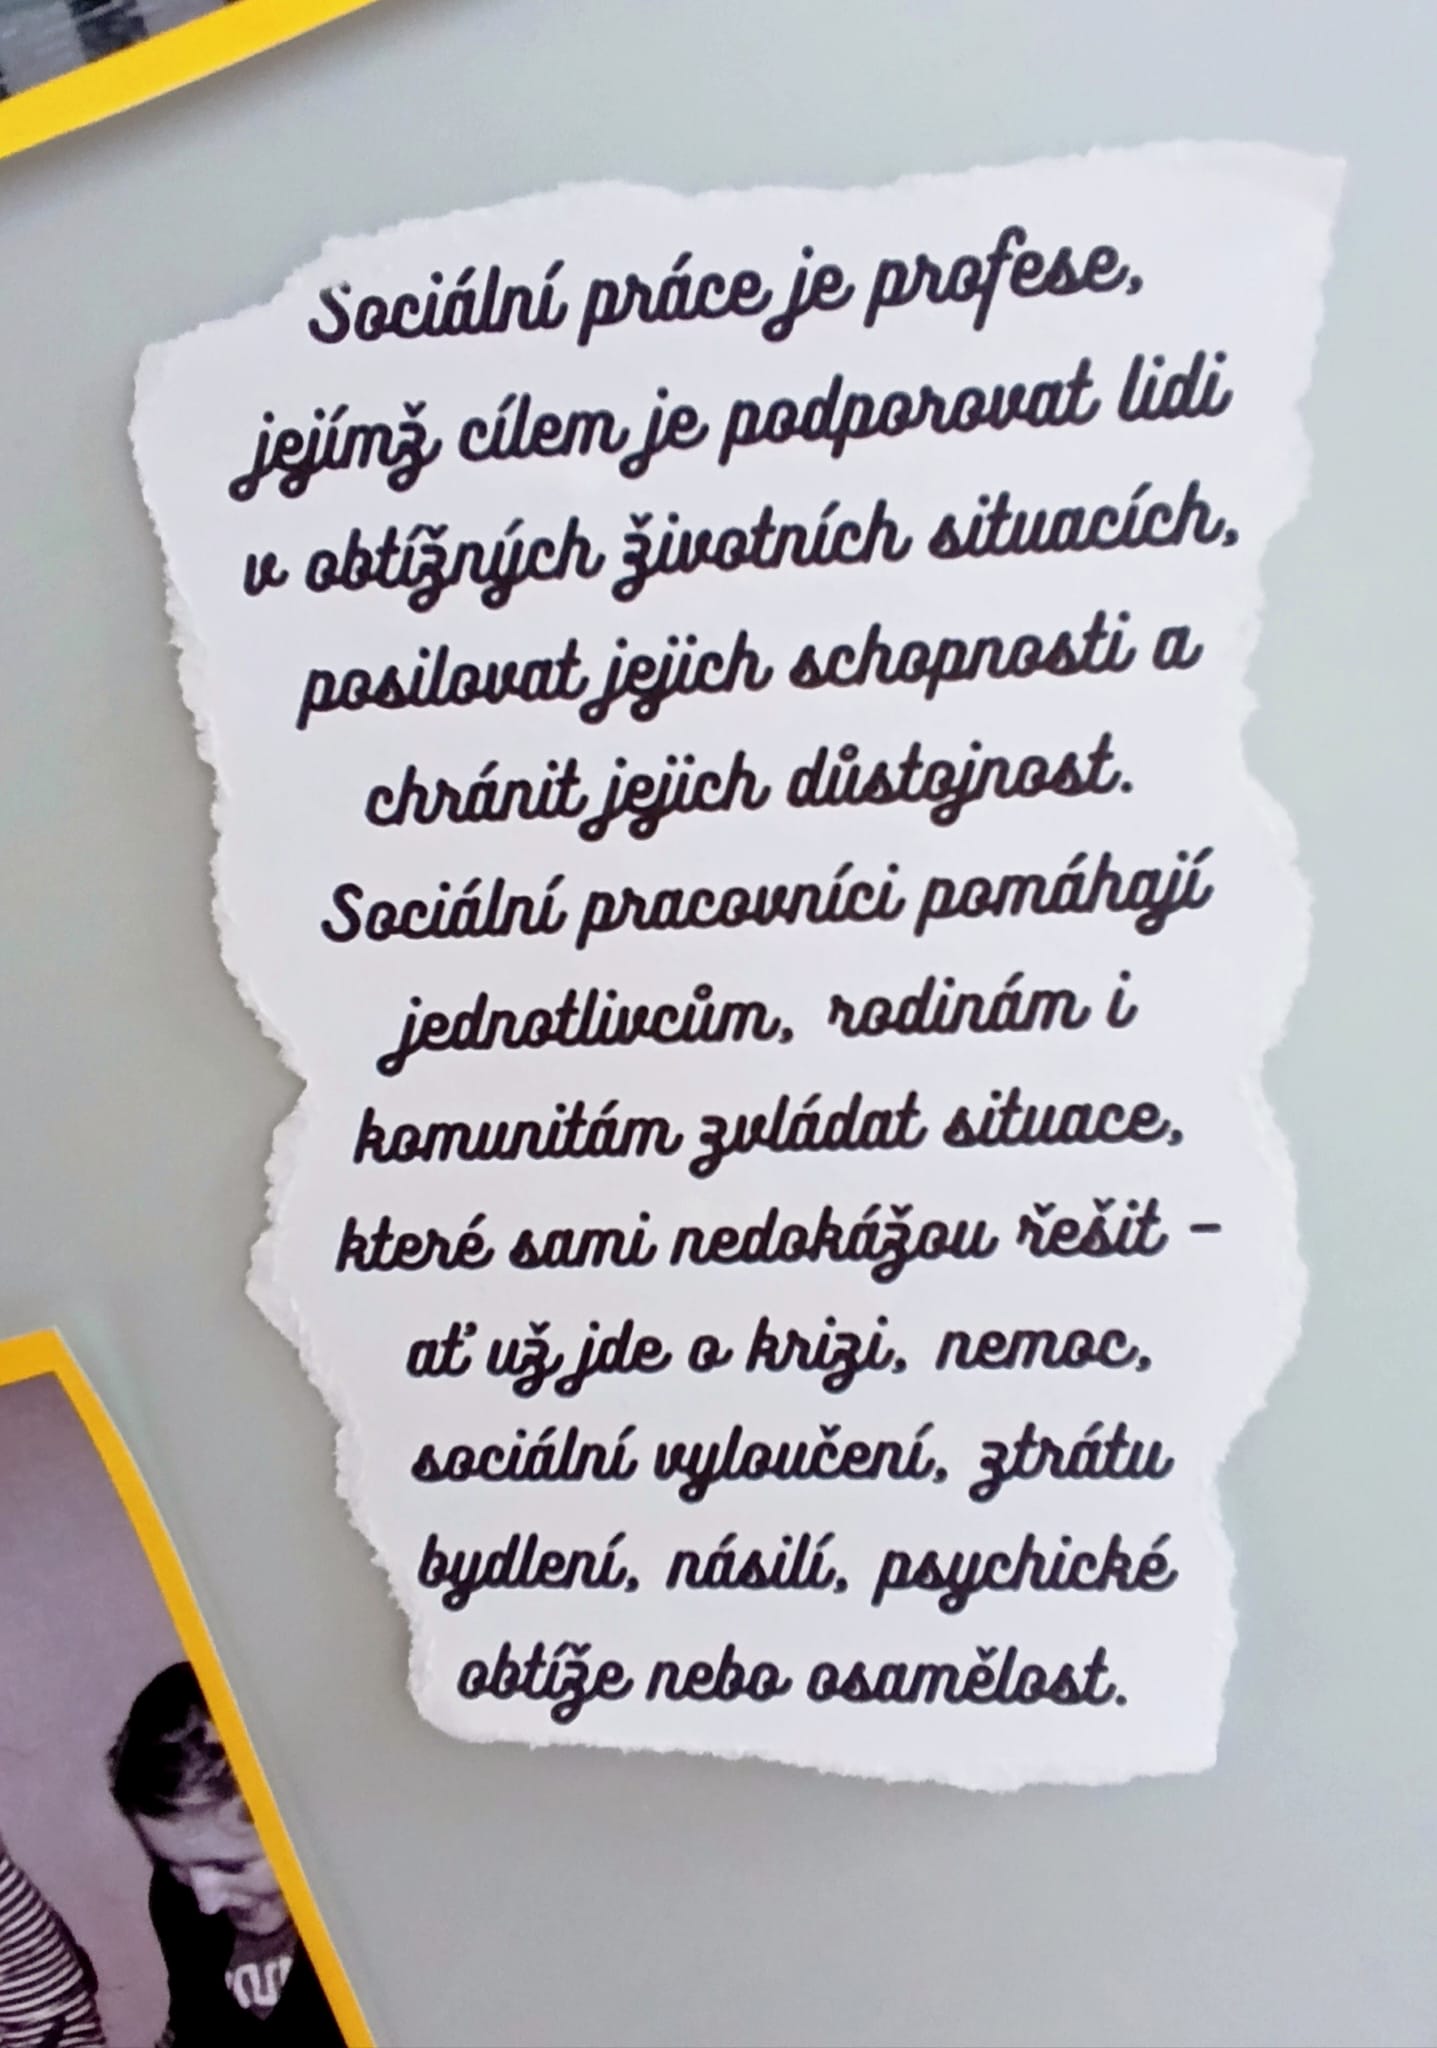 Sociální práce je profese,
jejímž cílem je podporovat lidi
v obtížných životních situacích,
posilovat jejich schopnosti a
chránit jejich důstojnost.
Sociální pracovníci pomáhají
jednotlivcům, rodinám i
komunitám zvládat situace,
které sami nedokážou řešit –
ať už jde o krizi, nemoc,
sociální vyloučení, ztrátu
bydlení, násilí, psychické
obtíže nebo osamělost.